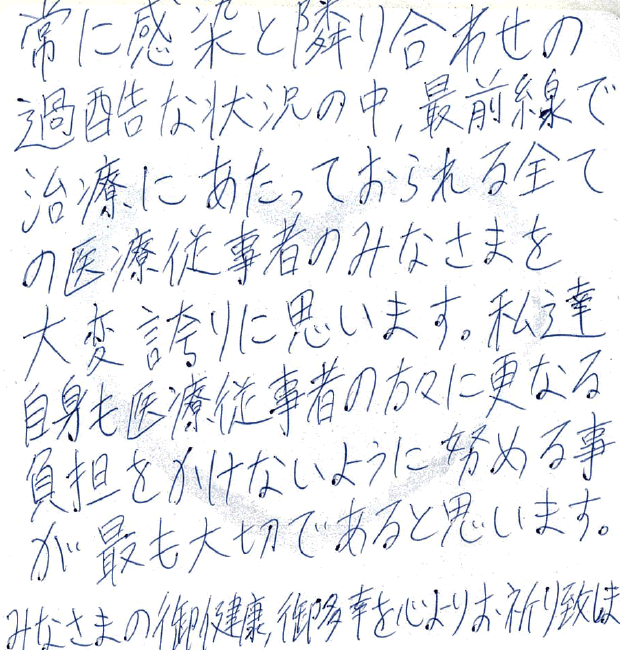 常に感染と隣り合わせの
過酷な状況の中,最前線で
治療にあたっておられる全て
の医療従事者のみなさまを
大変誇りに思います。私達
自身も医療従事者の方々に更なる
負担をかけないように努める事
が最も大切であると思います。
みなさまの御健康,御多幸を心よりお祈り致しま